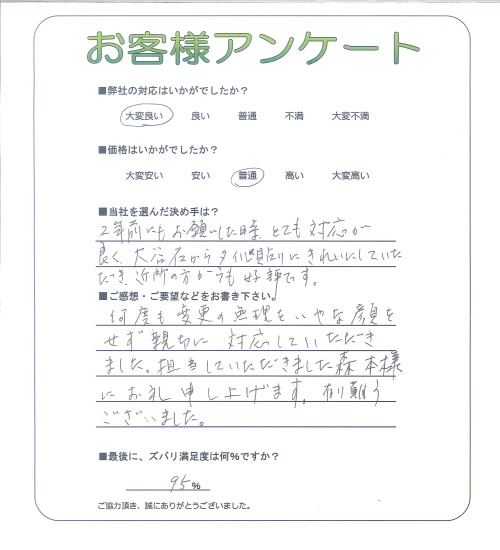 お客様アンケート
■弊社の対応はいかがでしたか？
大変良い 良い 普通 不満 大変不満
■価格はいかがでしたか？
大変安い 安い 普通 高い 大変高い
■当社を選んだ決め手は？
2年前にもお願いした時、とても対応が
良く、大谷石からタイル貼りにきれいにしていた
だき、近所の方からも好評です。
■ご感想・ご要望などをお書き下さい。
何度も変更の無理をいやな顔を
せず親切に対応していただき
ました。担当していただきました森本様
にお礼申し上げます。有り難う
ございました。
■最後に、ズバリ満足度は何%ですか？
95%
ご協力頂き、誠にありがとうございました。